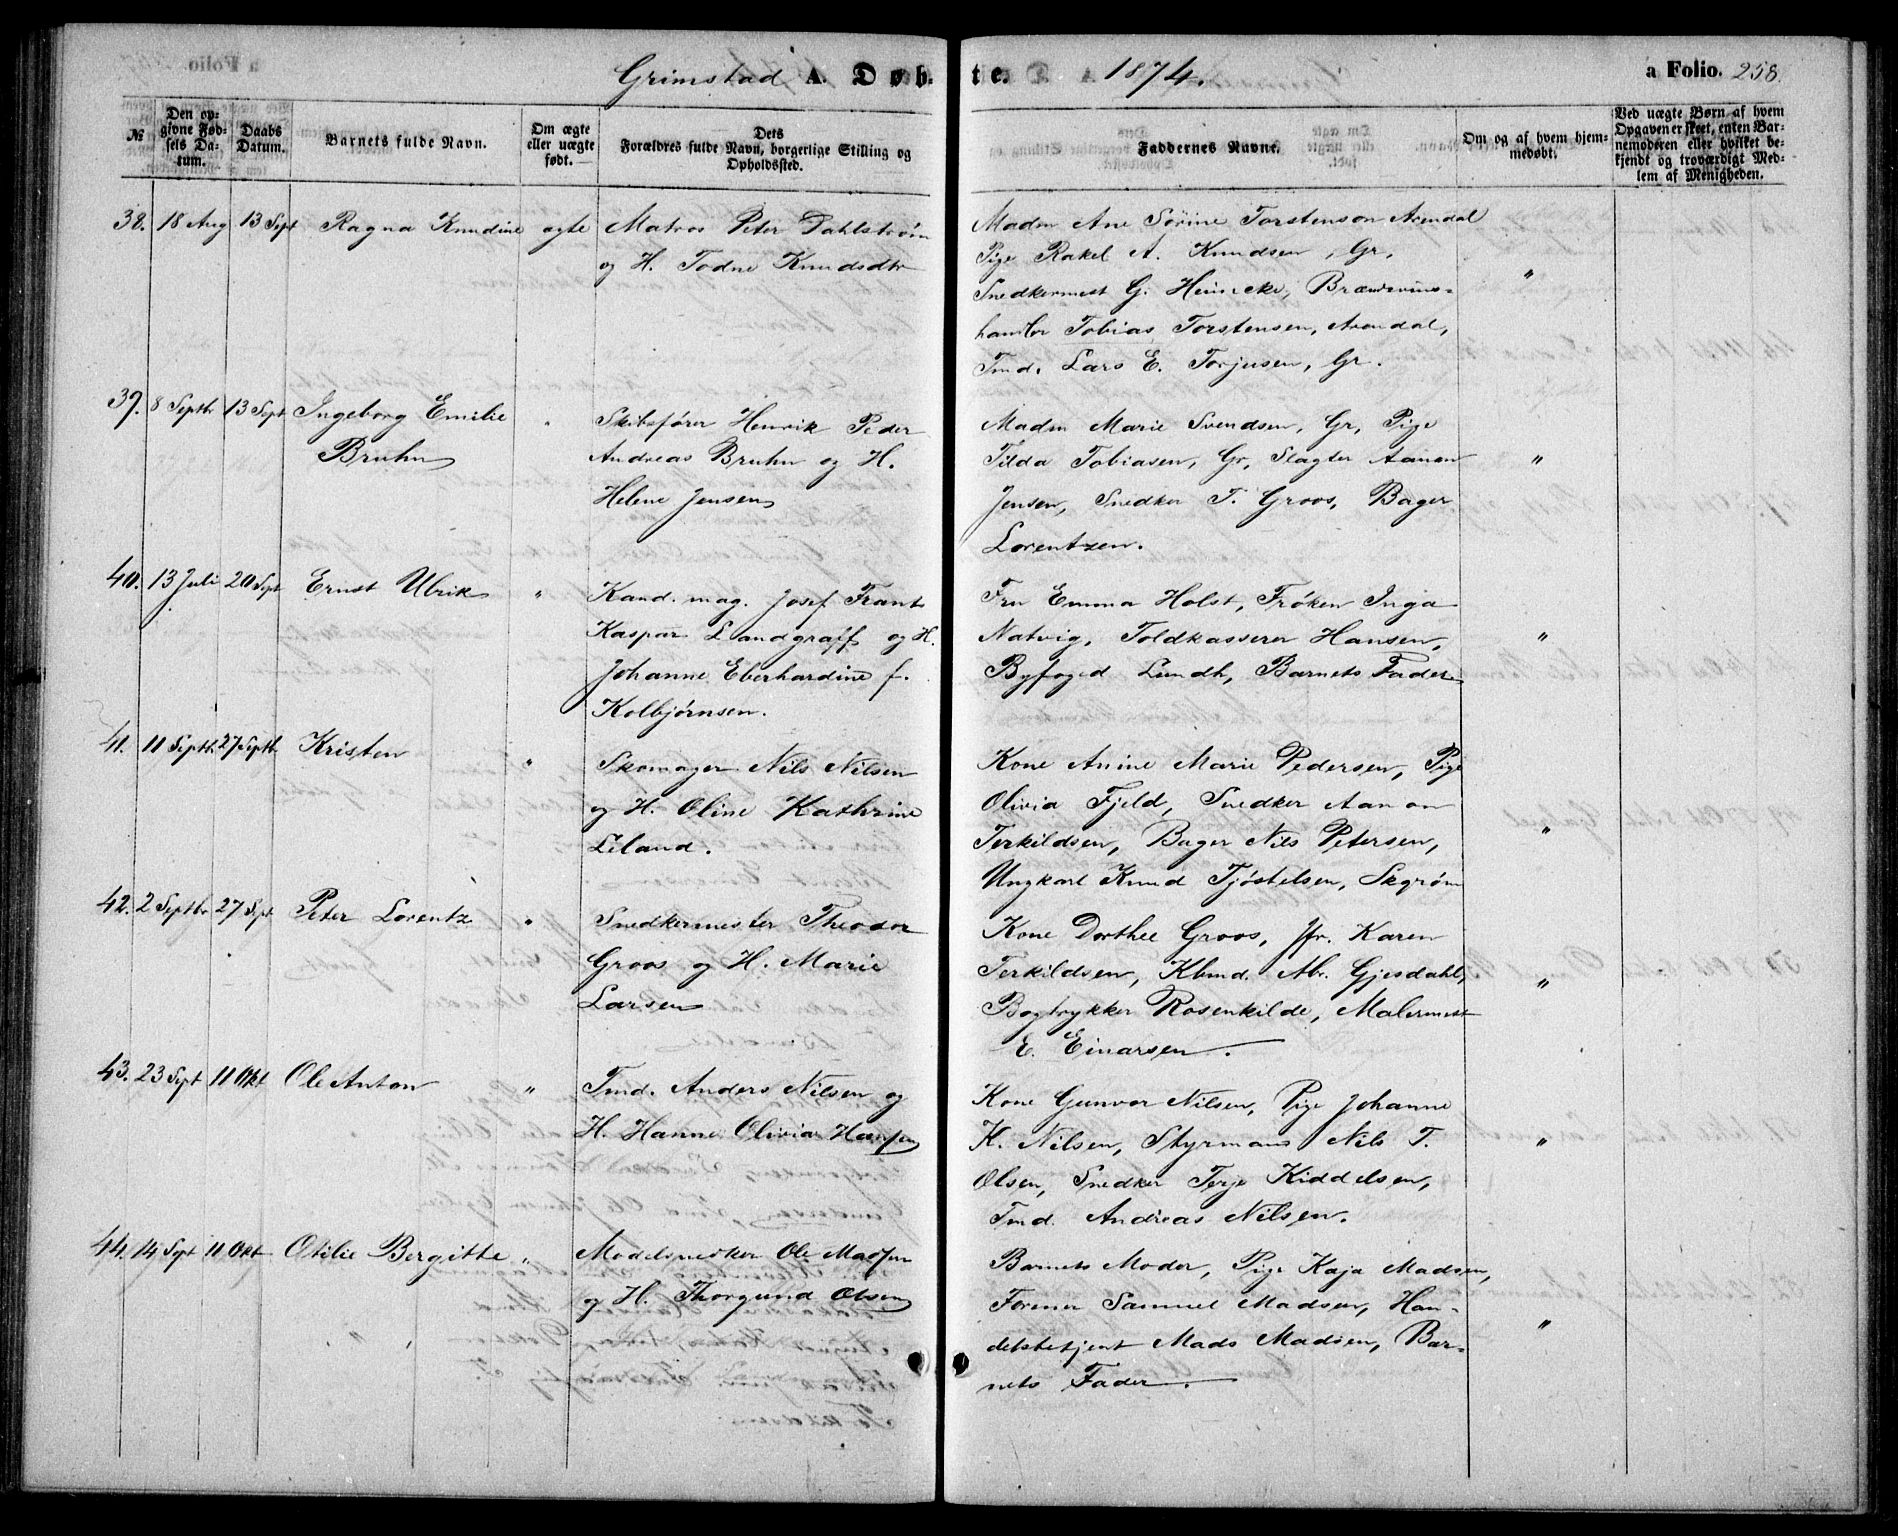 Grimstad A. Døbte. 1874. a Folio. 258.
№
Den opgivne Fødsels Datum.
Daabs Datum.
Barnets fulde Navn.
Om ægte eller uægte født.
Dets Forældres fulde Navn, borgerlige Stilling og Opholdssted.
Faddernes Navne.
Om og af hvem hjemmedøbt.
Ved uægte Børn af hvem Opgaven er skeet, enten Barnemoderen eller hvilket bekjendt og troværdigt Medlem af Menigheden.
38. 18 Aug 13 Sept Ragna Knudine ægte
Matros Peter Dahlstrøm
og H. Todne Knudsdtr
Madm Ane Sörine Torstenson Arendal
Pige Rakel A. Knudsen, Gr,
Snedkermest G. Heinecke, Brændevins-
handler Tobias Torstensen, Arendal,
Tmd. Lars E. Torjusen, Gr.
"
39. 8 Septbr 13 Sept Ingeborg Emilie
Bruhn
"
Skibsfører Henrik Peder
Andreas Bruhn og H.
Helene Jensen
Madm Marie Svendsen, Gr, Pige
Tilda Tobiasen, Gr, Slagter Aanon
Jensen, Snedker T. Groos, Bager
Lorentzen.
"
40. 13 Juli 20 Sept Ernst Ulrik "
Kand. mag. Josef Frants
Kaspar Landgraff og H.
Johanne Eberhardine f.
Kolbjørnsen.
Fru Emma Holst, Frøken Inga
Natvig, Toldkasserer Hansen,
Byfoged Lundh, Barnets Fader
"
41. 11 Septbr 27 Septb. Kristen "
Skomager Nils Nilsen
og H. Oline Kathrine
Leland.
Kone Anine Marie Pedersen, Pige
Olivia Fjeld, Snedker Aanon
Terkildsen, Bager Nils Petersen,
Ungkarl Knud Tjøstelsen, Skgrøm
"
42. 2 Septbr 27 Sept Peter Lorentz "
Snedkermester Theodor
Groos og H. Marie
Larsen
Kone Dorthee Groos, Jfr. Karen
Terkildsen, Kbmd. Abr. Gjesdahl,
Bogtrykker Rosenkilde, Malermest
E. Einarsen.
"
43. 23 Sept 11 Okt Ole Anton "
Tmd. Anders Nilsen og
H. Hanne Olivia Hansen
Kone Gunvor Nilsen, Pige Johanne
K. Nilsen, Styrmand Nils T.
Olsen, Snedker Terje Kiddelsen,
Tmd. Andreas Nilsen.
"
44. 14 Sept 11 Okt Otilie Bergitte "
Modelsnedker Ole Madsen
og H. Thorgund Olsen
Barnets Moder, Pige Kaja Madsen,
Former Samuel Madsen, Han-
delsbetjent Mads Madsen, Bar-
nets Fader.
"